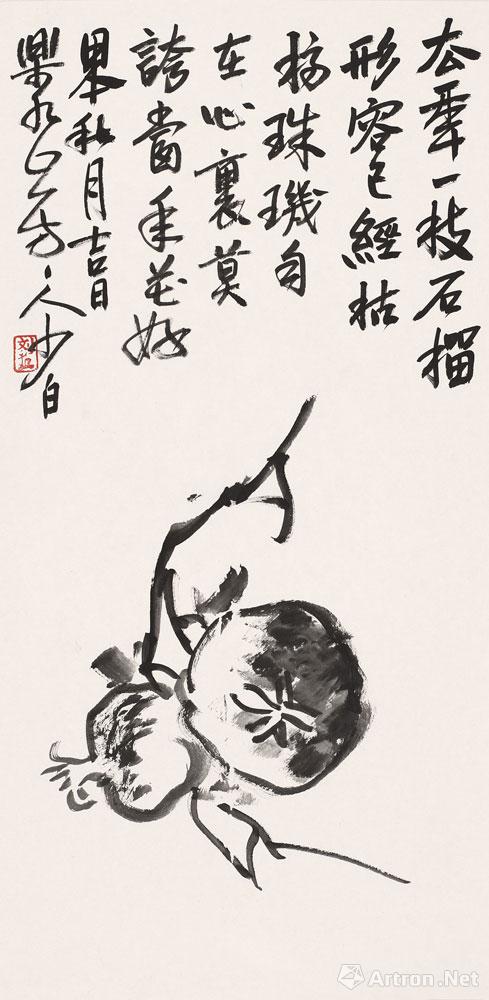 去年一枝石榴
形容已經枯
槁珠璣自
在心裏莫
誇當年花好
秋月吉日
人少白
Artron.Net